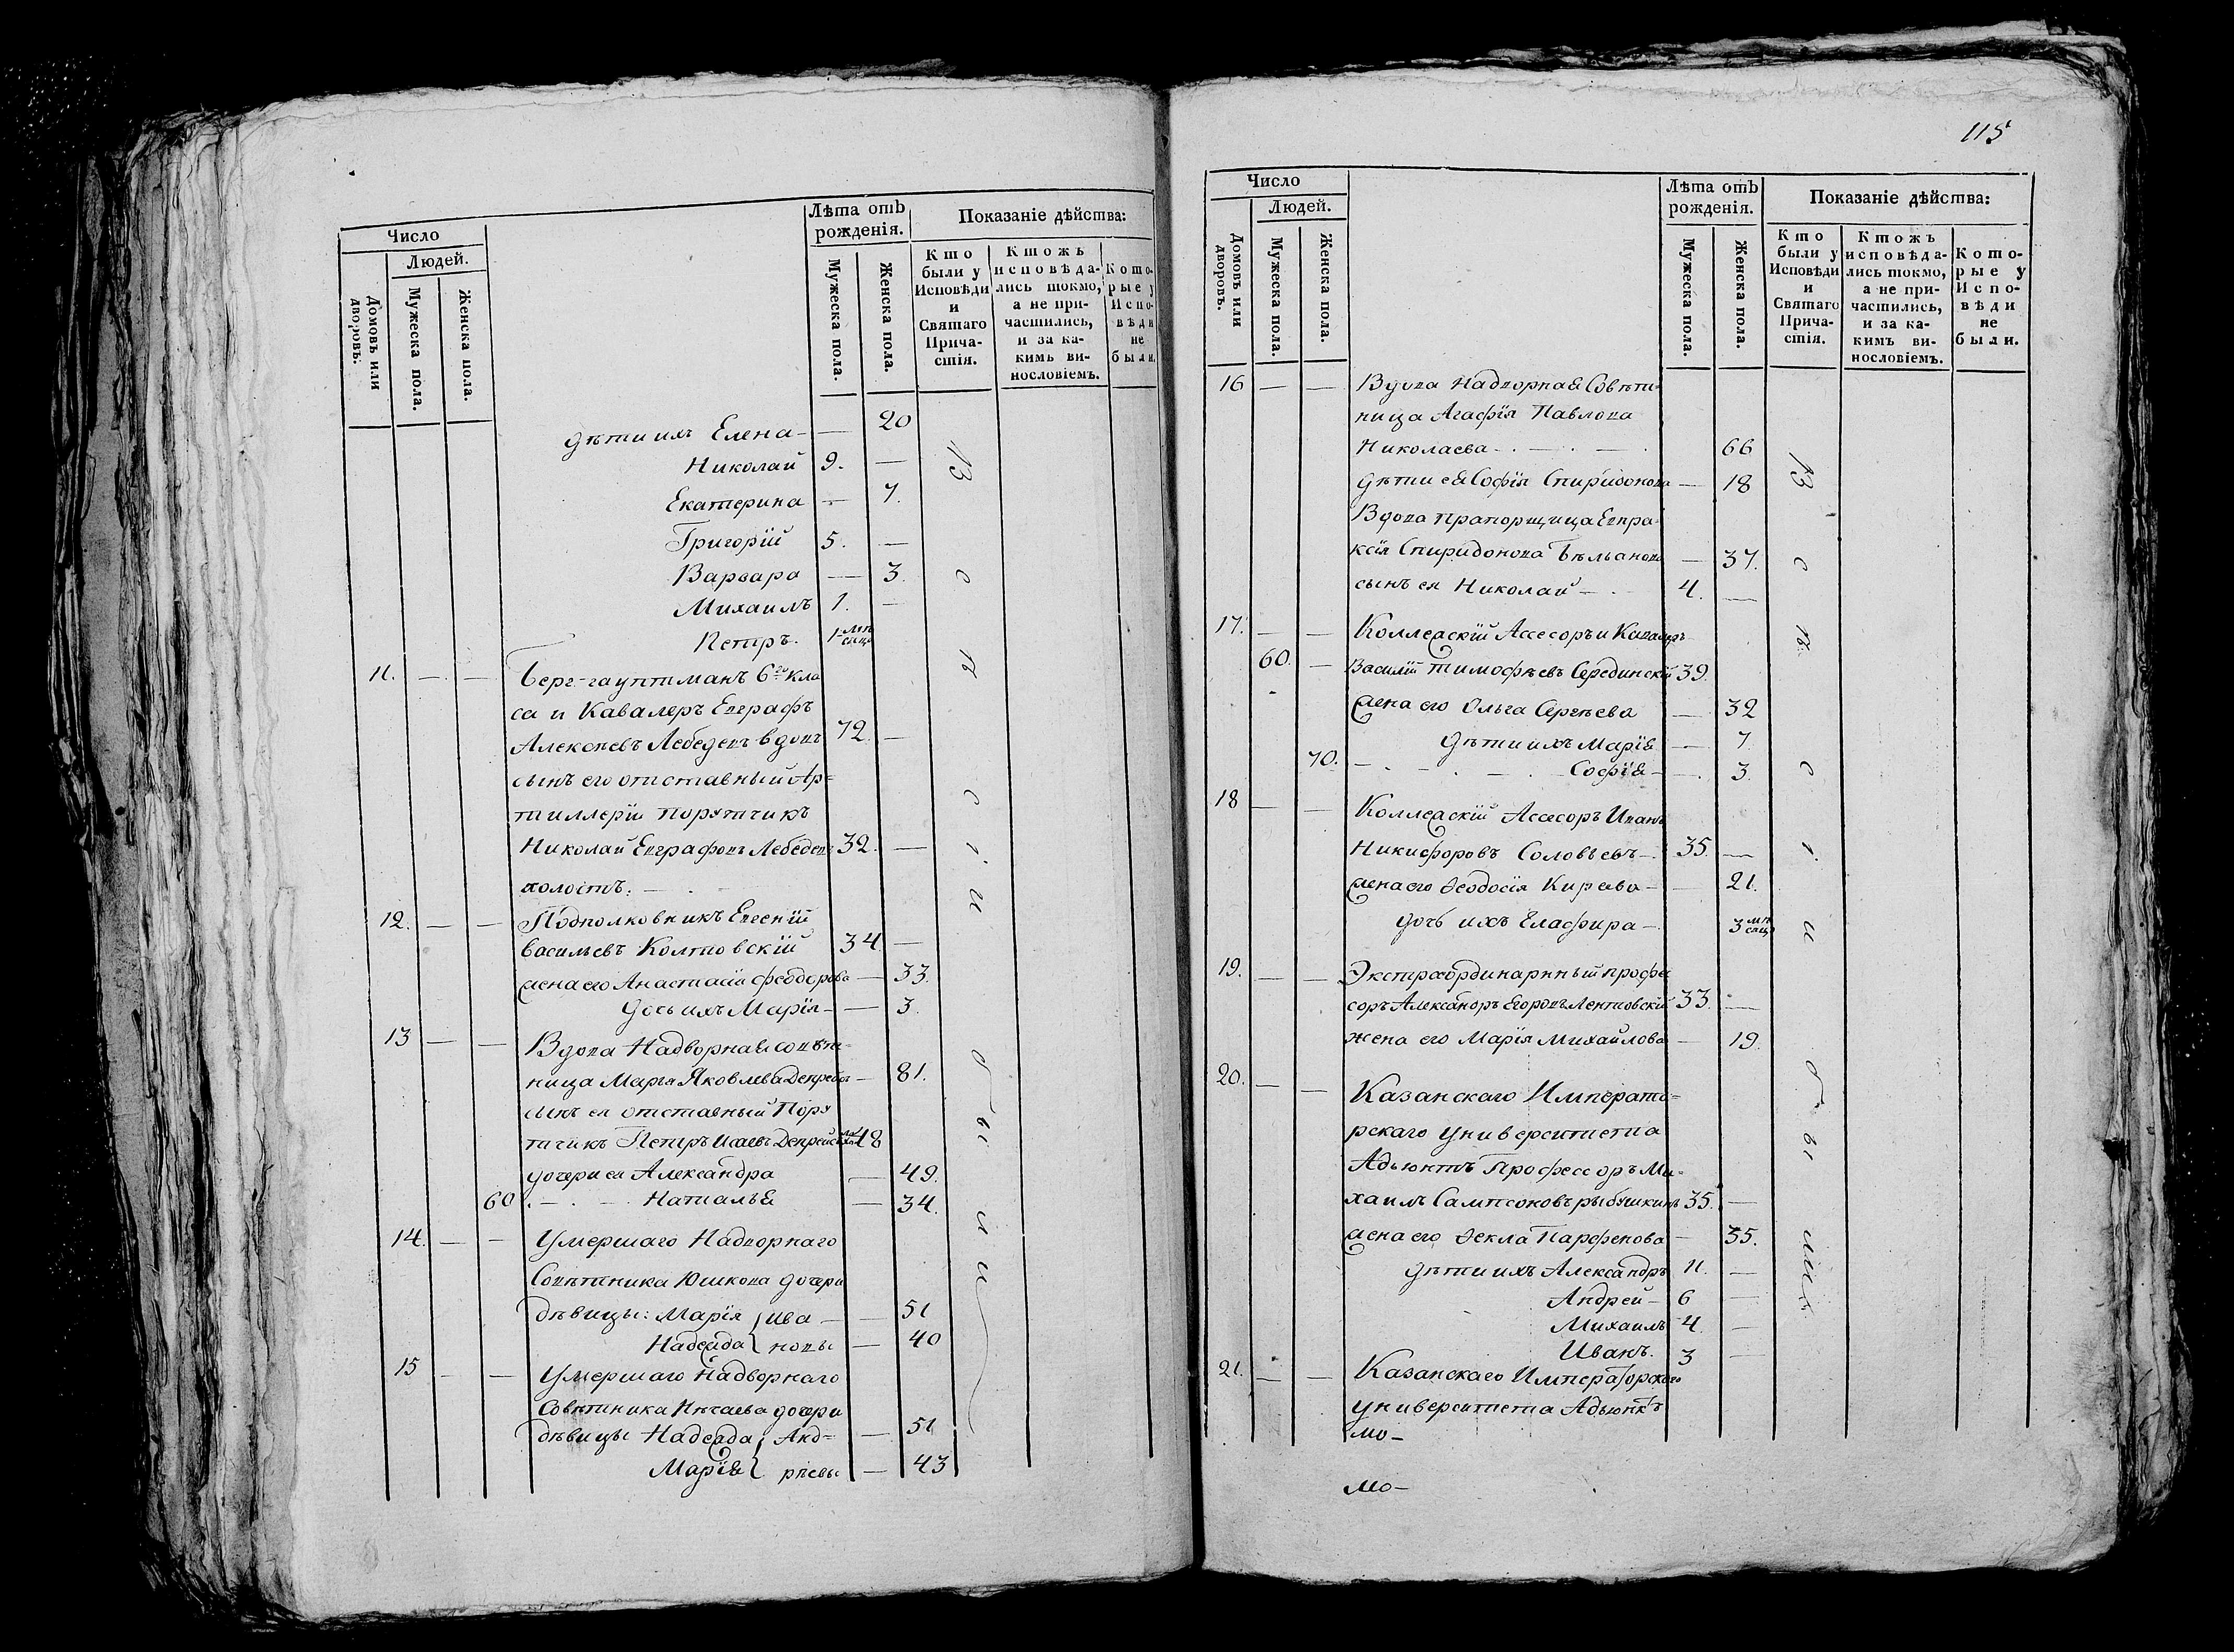 Число
Людей.
Домовъ или дворовъ:
Мужеска пола.
Женска пола.
Лѣта отъ рожденія.
Мужеска пола.
Женска пола.
Показаніе дѣйства:
Кто были у Исповѣди и Святаго Прича-стія.
Ктожъ исповѣда-лись токмо, а не при-частились, и за ка-кимъ ви-нословіемъ.
Кото-рые у Испо-вѣди не были.
дѣти ихъ Елена — — 20
Николай 9. —
Екатерина — 7.
Григорій 5. —
Варвара — 3.
Михаилъ 1. —
Петръ. 1 мѣсяца
11. — — Берг-гауптманъ 6го кла
са и Кавалеръ Евграфъ
Алексѣевъ Лебедевъ вдовъ 72. —
сынъ его отставный Ар=
тиллеріи порутчикъ
Николай Евграфовъ Лебедевъ 32. —
холостъ. —
12. — — Подполковникъ Евгеній
Васильевъ Колтовскій 34 —
жена его Анастасія Феодорова — 33.
дочь ихъ Марія — — 3.
13 — — Вдова Надворная совѣт-
ница Марья Яковлева — 81.
сынъ ея отставный Пору
тчикъ Петръ 48
дочери ея Александра — 49.
60 — Наталья — 34.
14. — — Умершаго Надворнаго
Совѣтника Юшкова дочери
дѣвицы: Марія } Ива — — 51
Надежда } новы — 40
15 — — Умершаго Надворнаго
Совѣтника Нѣчаева дочери
дѣвицы Надежда } Анд= — 51
Марія } рѣевы — 43
В
с
ѣ
с
і
и
б
ы
л
и
115
Число
Людей.
Домовъ или дворовъ.
Мужеска пола.
Женска пола.
Лѣта отъ рожденія.
Мужеска пола.
Женска пола.
Показаніе дѣйства:
Кто были у Исповѣди и Святаго Прича-стія.
Ктожъ исповѣда-лись токмо, а не при-частились, и за ка-кимъ ви-нословіемъ.
Кото-рые у Испо-вѣди не были.
16 — — Вдова Надворная Совѣти-
ница Агафія Павлова
Николаева — 66
дѣти ея Софія Спиридонова — 18
Вдова Прапорщица Евпра-
ксія Спиридонова — 37.
сынъ ея Николай — 4. —
17. — — Коллежскій Ассесоръ и Кавалеръ
60. — Василій Тимофѣевъ Серединскій 39.
жена его Ольга Сергѣева — 32
дѣти ихъ Марія — 7
70. — Софія — — 3.
18 — — Коллежскій Ассесоръ Иванъ
Никифоровъ Соловьевъ — 35. —
жена его Ѳеодосія — 21.
дочь ихъ Елафира — 3 мѣсяца
19. — — Экстраординарный профе
соръ Александръ Егоровъ Лентовскій 33. —
жена его Марія Михайлова — 19.
20. — — Казанскаго Императо=
рскаго Университета
Адьюнтъ Профессоръ Ми=
хаилъ Сампсоновъ Рыбушкинъ 35. —
жена его Ѳекла Парфенова — 35.
дѣти ихъ Александръ 11. —
Андрей — 6 —
Михаилъ 4. —
Иванъ. 3 —
21. — — Казанскаго Императорскаго
Университета Адьюнктъ
мо-
мо-
В
с
ѣ
с
і
и
б
ы
ли